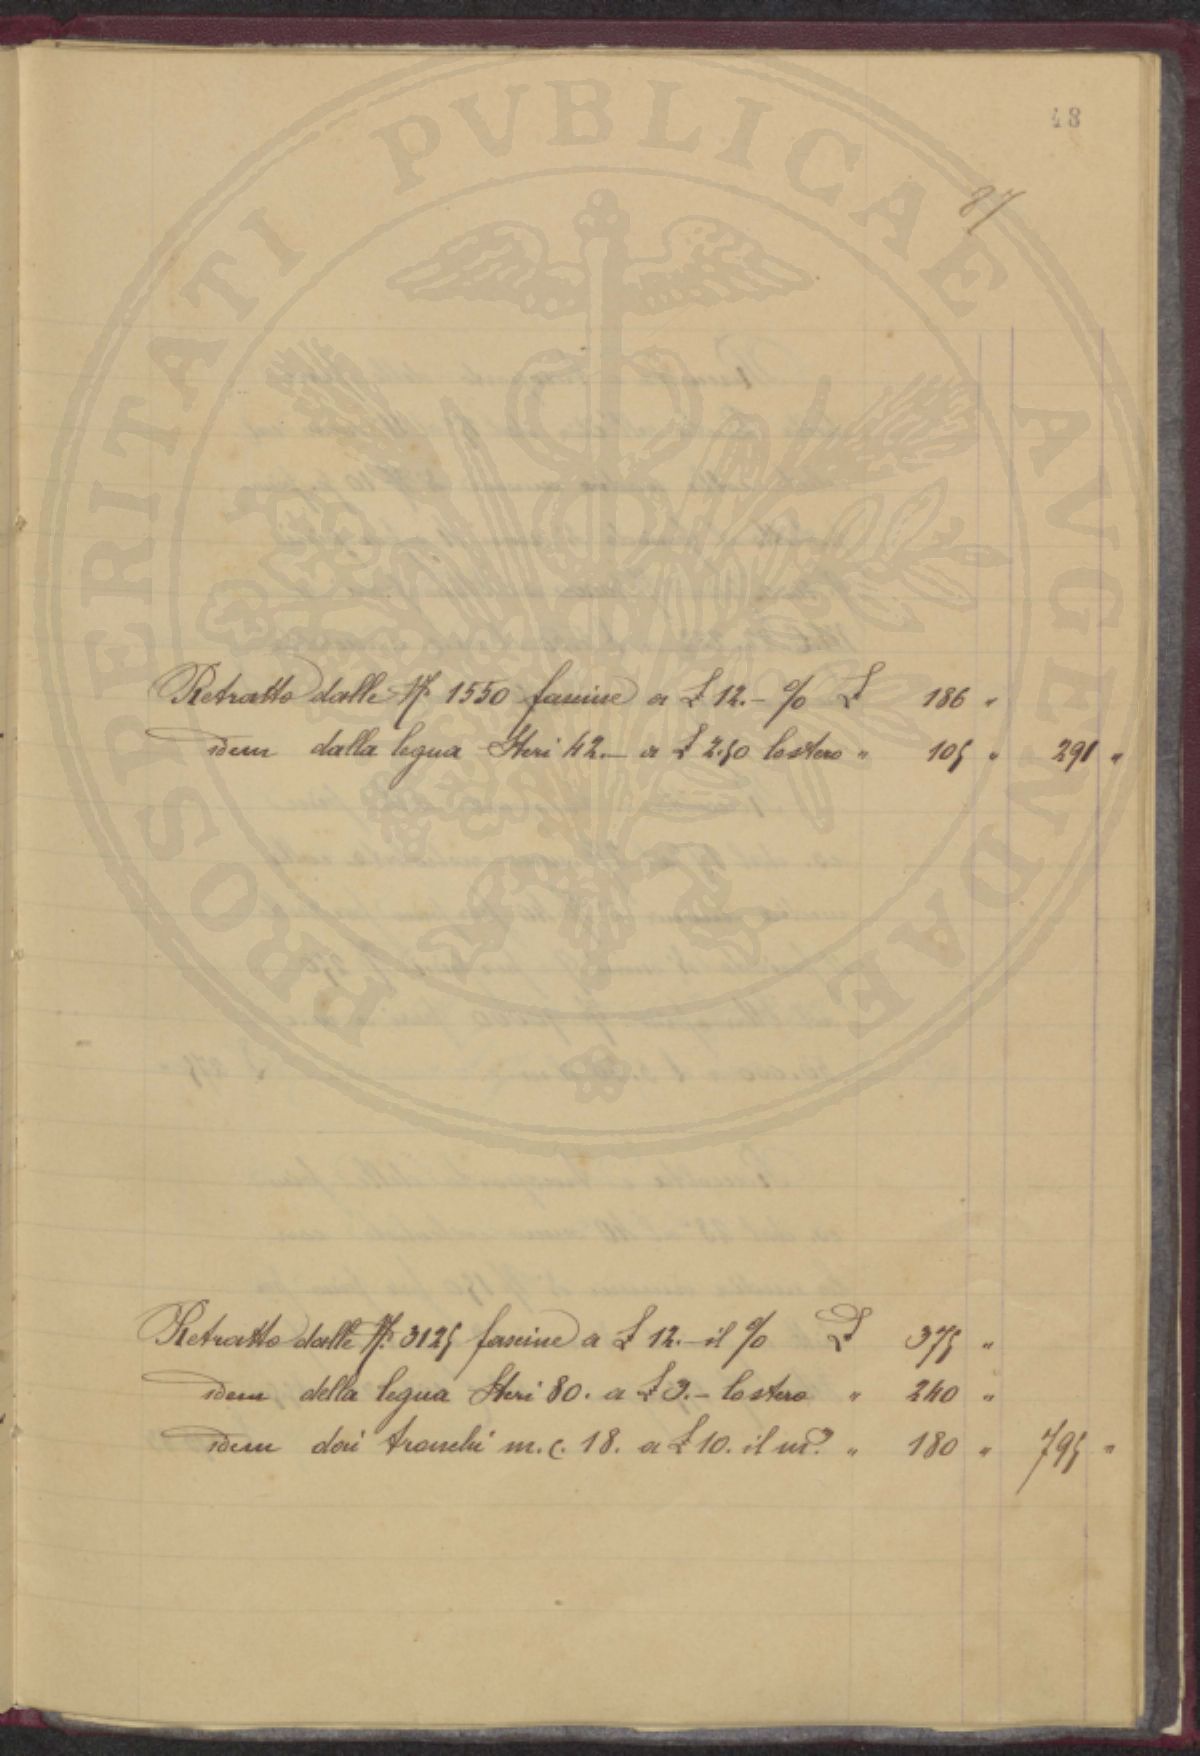 48
87
PROSPERITATI PVBLICAE AVGENDAE
Retratto dalle N. 1550 fascine a £ 12.- % £ 186 "
idem dalla legna Steri 42.- a £ 2.50 lo stero " 105 " 291 "
Retratto dalle N. 3125 fascine a £ 12.- il % £ 375 "
idem della legna Steri 80. a £ 3.- lo stero " 240 "
idem dai tronchi m.c. 18. a £ 10. il m³. " 180 " 795 "